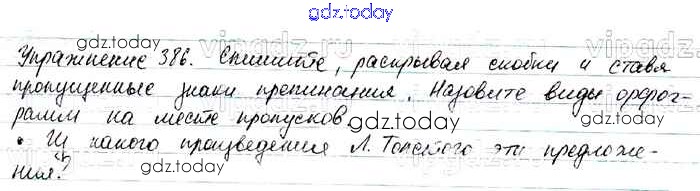 gdz.today
Упражнение 386. Спишите, раскрывая скобки и ставя
gdz.today
пропущенные знаки препинания. Назовите виды орфог-
рамм на месте пропусков.
gdz.today
• Из какого произведения Л. Толстого эти предложе-
ния?
gdz.today